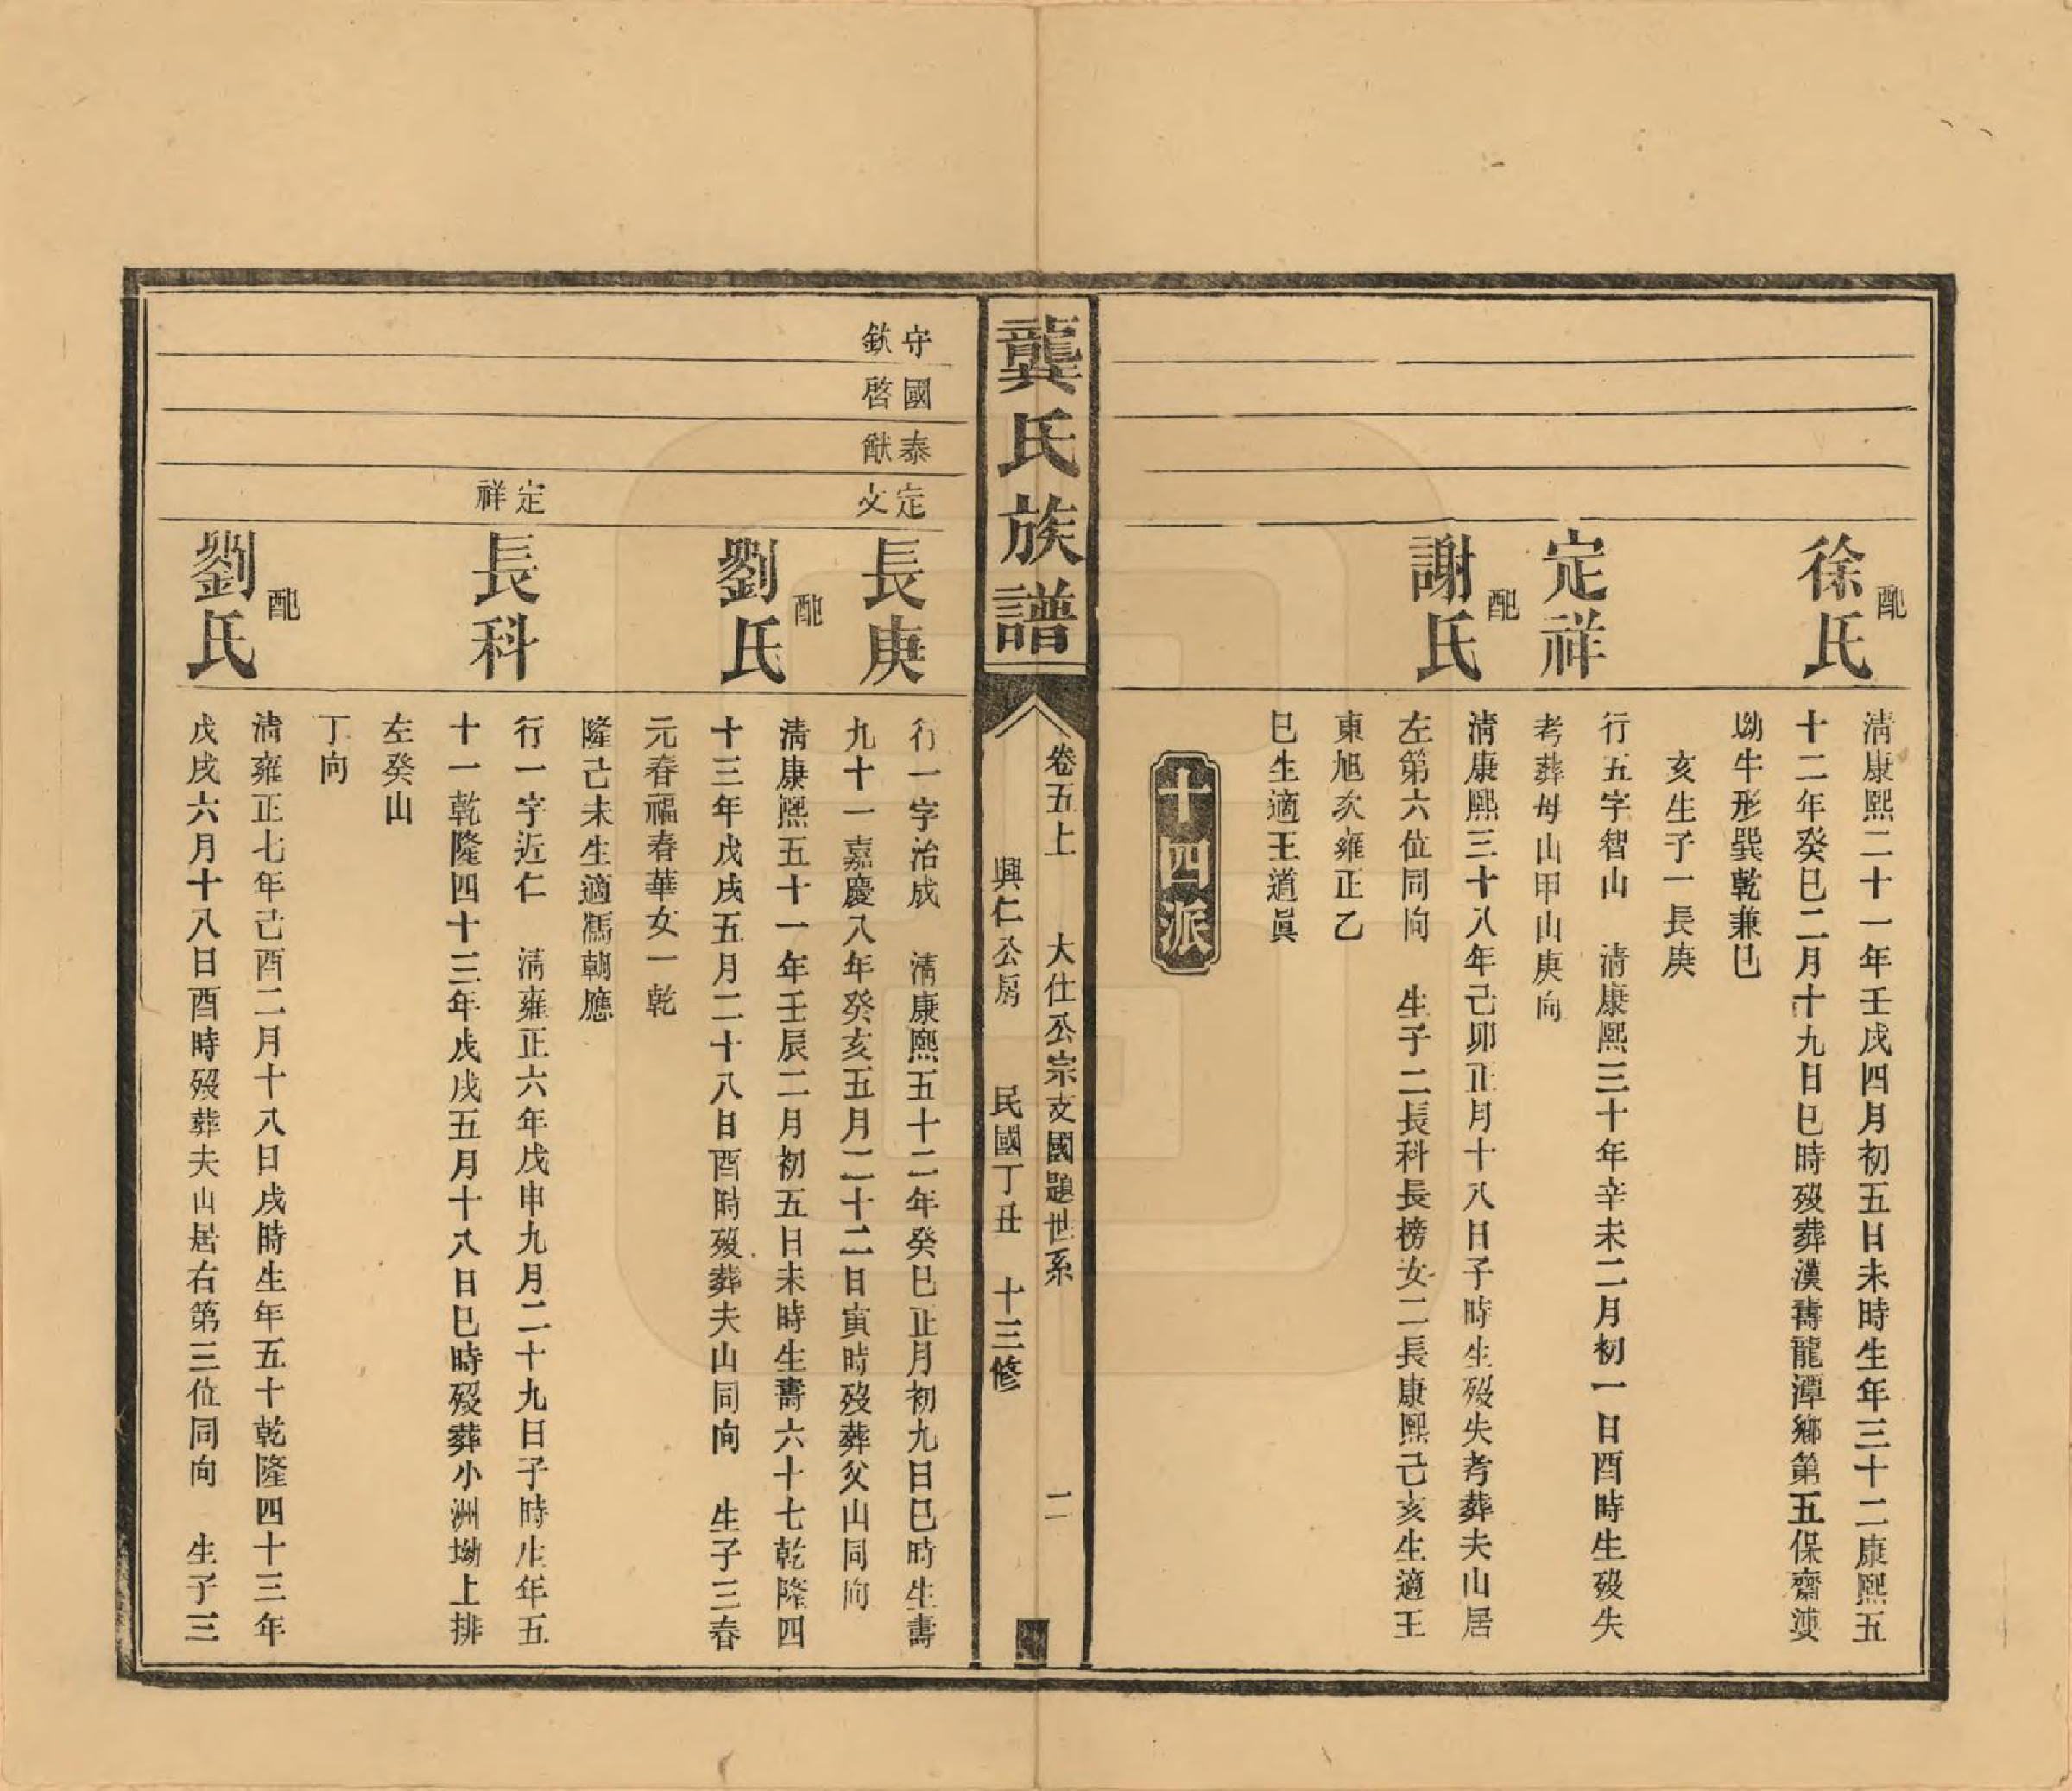 配
徐氏
清康熙二十一年壬戌四月初五日未時生年三十二康熙五
十二年癸巳二月十九日巳時歿葬漢壽龍潭鄉第五保齋
坳牛形巽乾兼巳
亥生子一長庚
定祥
行五字智山　清康熙三十年辛未二月初一日酉時生歿失
考葬母山甲山庚向
配
謝氏
清康熙三十八年己卯正月十八日子時生歿失考葬夫山居
左第六位同向　生子二長科長榜女二長康熙己亥生適王
東旭次雍正乙
巳生適王道眞
十四派
龔氏族譜
卷五上　大仕公宗支國題世系　二
興仁公房　民國丁丑　十三修
守欽
國啓
泰猷
定文
長庚
行一字治成　清康熙五十二年癸巳正月初九日巳時生壽
九十一嘉慶八年癸亥五月二十二日寅時歿葬父山同向
配
劉氏
清康熙五十一年壬辰二月初五日未時生壽六十七乾隆四
十三年戊戌五月二十八日酉時歿葬夫山同向　生子三春
元春福春華女一乾
隆己未生適馮朝應
定祥
長科
行一字近仁　清雍正六年戊申九月二十九日子時生年五
十一乾隆四十三年戊戌五月十八日巳時歿葬小洲坳上排
左癸山
丁向
配
劉氏
清雍正七年己酉二月十八日戌時生年五十乾隆四十三年
戊戌六月十八日酉時歿葬夫山居右第三位同向　生子三